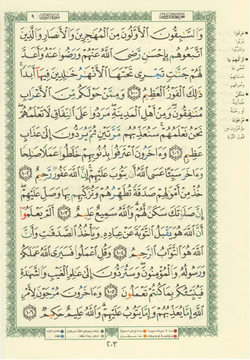 وَالسَّٰبِقُونَ الْأَوَّلُونَ مِنَ الْمُهَٰجِرِينَ وَالْأَنصَارِ وَالَّذِينَ
اتَّبَعُوهُم بِإِحْسَٰنٍ رَّضِيَ اللَّهُ عَنْهُمْ وَرَضُوا عَنْهُ وَأَعَدَّ
لَهُمْ جَنَّٰتٍ تَجْرِي تَحْتَهَا الْأَنْهَٰرُ خَٰلِدِينَ فِيهَا أَبَدًا
ذَٰلِكَ الْفَوْزُ الْعَظِيمُ ﴿١٠٠﴾ وَمِمَّنْ حَوْلَكُم مِّنَ الْأَعْرَابِ
مُنَٰفِقُونَ وَمِنْ أَهْلِ الْمَدِينَةِ مَرَدُوا عَلَى النِّفَاقِ لَا تَعْلَمُهُمْ
نَحْنُ نَعْلَمُهُمْ سَنُعَذِّبُهُم مَّرَّتَيْنِ ثُمَّ يُرَدُّونَ إِلَىٰ عَذَابٍ
عَظِيمٍ ﴿١٠١﴾ وَءَاخَرُونَ اعْتَرَفُوا بِذُنُوبِهِمْ خَلَطُوا عَمَلًا صَٰلِحًا
وَءَاخَرَ سَيِّئًا عَسَى اللَّهُ أَن يَتُوبَ عَلَيْهِمْ إِنَّ اللَّهَ غَفُورٌ رَّحِيمٌ ﴿١٠٢﴾
خُذْ مِنْ أَمْوَٰلِهِمْ صَدَقَةً تُطَهِّرُهُمْ وَتُزَكِّيهِم بِهَا وَصَلِّ عَلَيْهِمْ
إِنَّ صَلَوٰتَكَ سَكَنٌ لَّهُمْ وَاللَّهُ سَمِيعٌ عَلِيمٌ ﴿١٠٣﴾ أَلَمْ يَعْلَمُوا
أَنَّ اللَّهَ هُوَ يَقْبَلُ التَّوْبَةَ عَنْ عِبَادِهِ وَيَأْخُذُ الصَّدَقَٰتِ وَأَنَّ
اللَّهَ هُوَ التَّوَّابُ الرَّحِيمُ ﴿١٠٤﴾ وَقُلِ اعْمَلُوا فَسَيَرَى اللَّهُ عَمَلَكُمْ
وَرَسُولُهُ وَالْمُؤْمِنُونَ وَسَتُرَدُّونَ إِلَىٰ عَٰلِمِ الْغَيْبِ وَالشَّهَٰدَةِ
فَيُنَبِّئُكُم بِمَا كُنتُمْ تَعْمَلُونَ ﴿١٠٥﴾ وَءَاخَرُونَ مُرْجَوْنَ لِأَمْرِ
اللَّهِ إِمَّا يُعَذِّبُهُمْ وَإِمَّا يَتُوبُ عَلَيْهِمْ وَاللَّهُ عَلِيمٌ حَكِيمٌ ﴿١٠٦﴾
٢٠٣